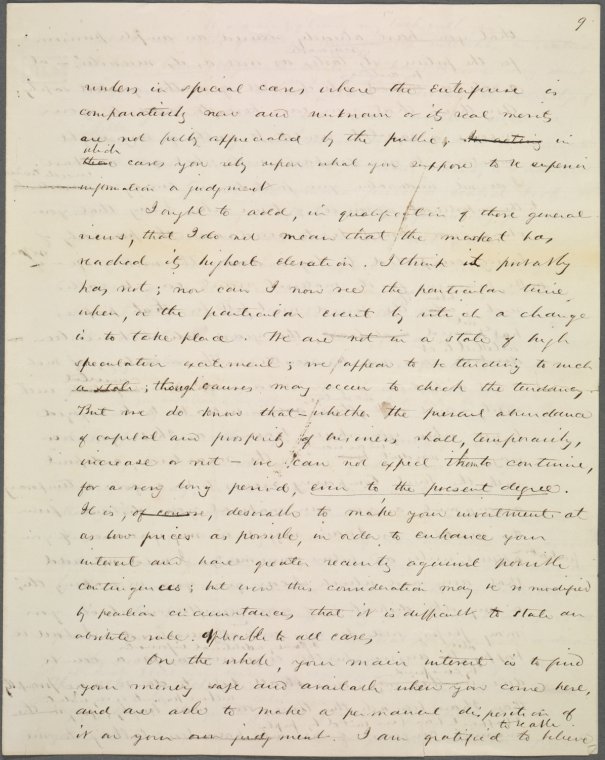 9
unless in special cases where the enterprise is
comparatively new and unknown or its real merits
are not fully appreciated by the public, In acting in
which
these cases you rely upon what you suppose to be superior
information & judgment
I ought to add, in qualification of these general
views, that I do not mean that the market has
reached its highest elevation. I think it probably
has not; nor can I now see the particular time,
when, or the particular event by which a change
is to take place. We are not in a state of high
speculative excitement; we appear to be tending to such
a state; though causes may occur to check the tendency.
But we do know that - whether the present abundance
of capital and prosperity of business shall, temporarily,
increase or not - we can not expect them to continue,
for a very long period, even to the present degree.
It is, of course, desirable to make your investments at
as low prices as possible, in order to enhance your
interest and have greater security against possible
contingencies; but even this consideration may be so modified
by peculiar circumstances, that it is difficult to state an
absolute rule applicable to all cases,
On the whole, your main interest is to find
your money safe and available when you come here,
and are able to make a permanent disposition of
it on your own judgment. I am gratified to believe